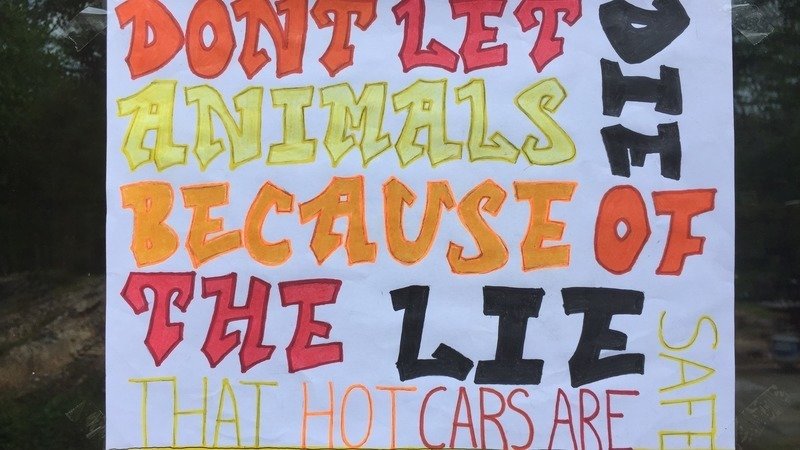 DONT LET
DIE
ANIMALS
BECAUSE OF
THE LIE
THAT HOT CARS ARE
SAFE